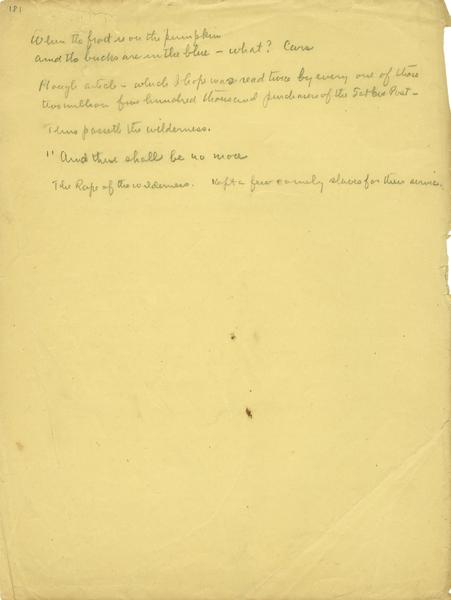 181
When the frost is on the pumpkin
and the bucks are in the blue – what? Cars
Hough article – which I hope was read twice by every one of those
two million five hundred thousand purchasers of the Sat Eve Post –
Thus passeth the wilderness.
" And there shall be no more
The Rape of the wilderness. Kept a few comely slaves for their service.